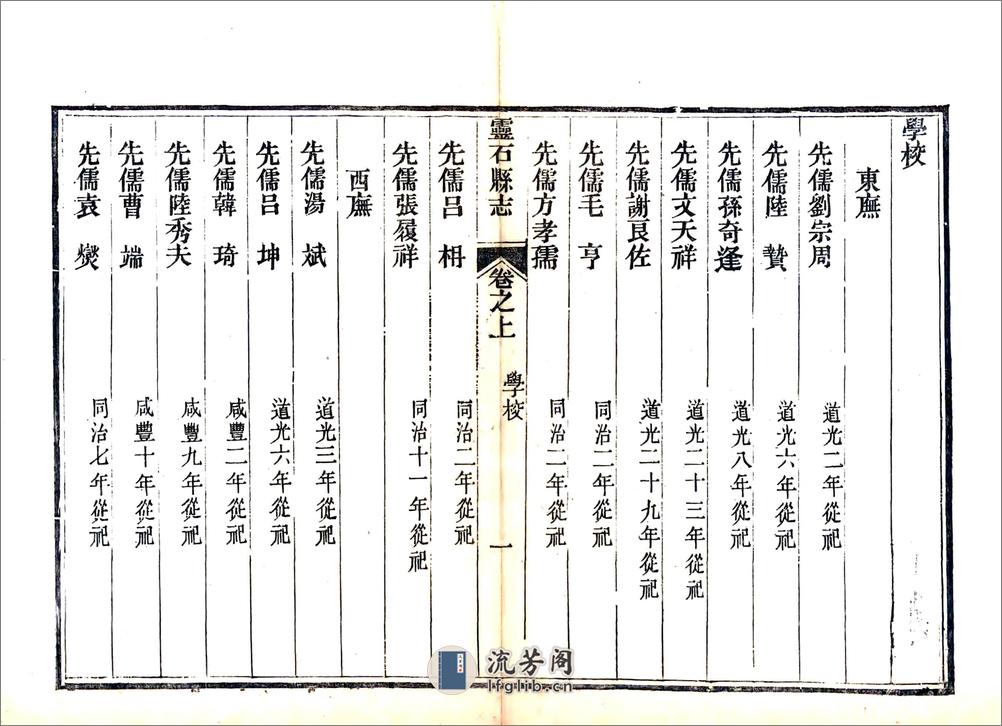 學校
東廡
先儒劉宗周 道光二年從祀
先儒陸贄 道光六年從祀
先儒孫奇逢 道光八年從祀
先儒文天祥 道光二十三年從祀
先儒謝良佐 道光二十九年從祀
先儒毛亨 同治二年從祀
先儒方孝孺 同治二年從祀
靈石縣志 卷之上 學校 一
先儒呂柟 同治二年從祀
先儒張履祥 同治十一年從祀
西廡
先儒湯斌 道光三年從祀
先儒呂坤 道光六年從祀
先儒韓琦 咸豐二年從祀
先儒陸秀夫 咸豐九年從祀
先儒曹端 咸豐十年從祀
先儒袁燮 同治七年從祀
流芳阁
lfglib.cn